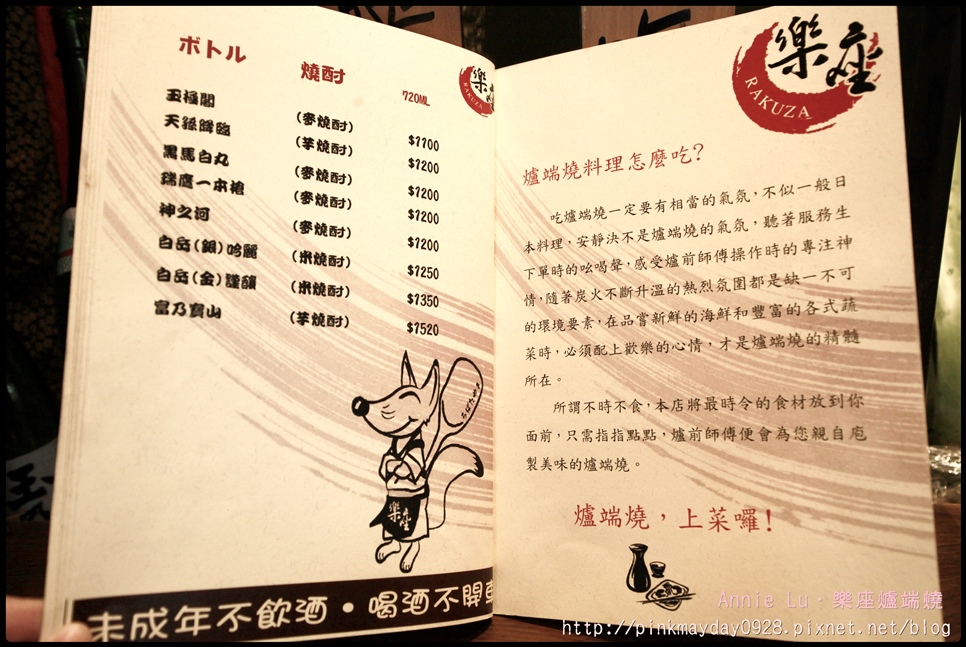 ボトル
燒酎
720ML
樂
RAKUZA
玉極閣 (麥燒酎) $1100
天孫降臨 (芋燒酎) $1200
黑馬白丸 (麥燒酎) $1200
鍋鷹一本槍 (麥燒酎) $1200
神之河 (麥燒酎) $1200
白岳(銀)吟麗 (米燒酎) $1250
白岳(金)謹釀 (米燒酎) $1350
富乃寶山 (芋燒酎) $1520
ろばたやき
樂座
未成年不飲酒・喝酒不開車
樂座
RAKUZA
爐端燒料理怎麼吃?
吃爐端燒一定要有相當的氣氛,不似一般日
本料理,安靜決不是爐端燒的氣氛,聽著服務生
下單時的吆喝聲,感受爐前師傅操作時的專注神
情,隨著炭火不斷升溫的熱烈氛圍都是缺一不可
的環境要素,在品嘗新鮮的海鮮和豐富的各式蔬
菜時,必須配上歡樂的心情,才是爐端燒的精髓
所在。
所謂不時不食,本店將最時令的食材放到你
面前,只需指指點點,爐前師傅便會為您親自庖
製美味的爐端燒。
爐端燒,上菜囉!
Annie Lu・樂座爐端燒
http://pinkmayday0928.pixnet.net/blog